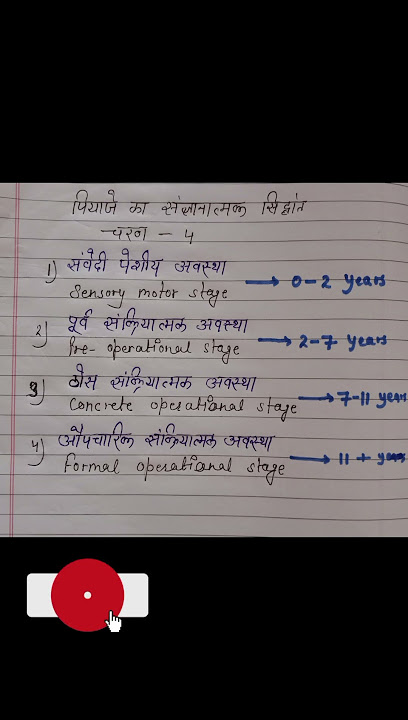 पियाजे का संज्ञानात्मक सिद्धांत
चरन - 4
1) संवेदी पेशीय अवस्था
Sensory motor stage → 0-2 years
2) पूर्व संक्रियात्मक अवस्था
Pre-operational stage → 2-7 years
3) ठोस संक्रियात्मक अवस्था
Concrete operational stage → 7-11 years
4) औपचारिक संक्रियात्मक अवस्था
formal operational stage → 11 + years